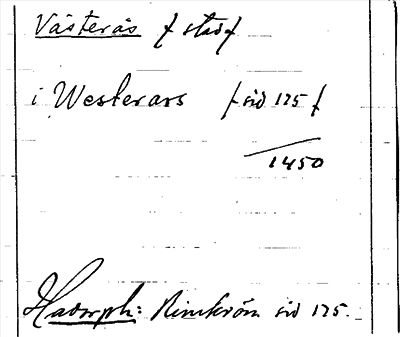 Västerås / stad /
i Westerars / sid 125 /
1450
Hadorph: Rimkrön sid 125.